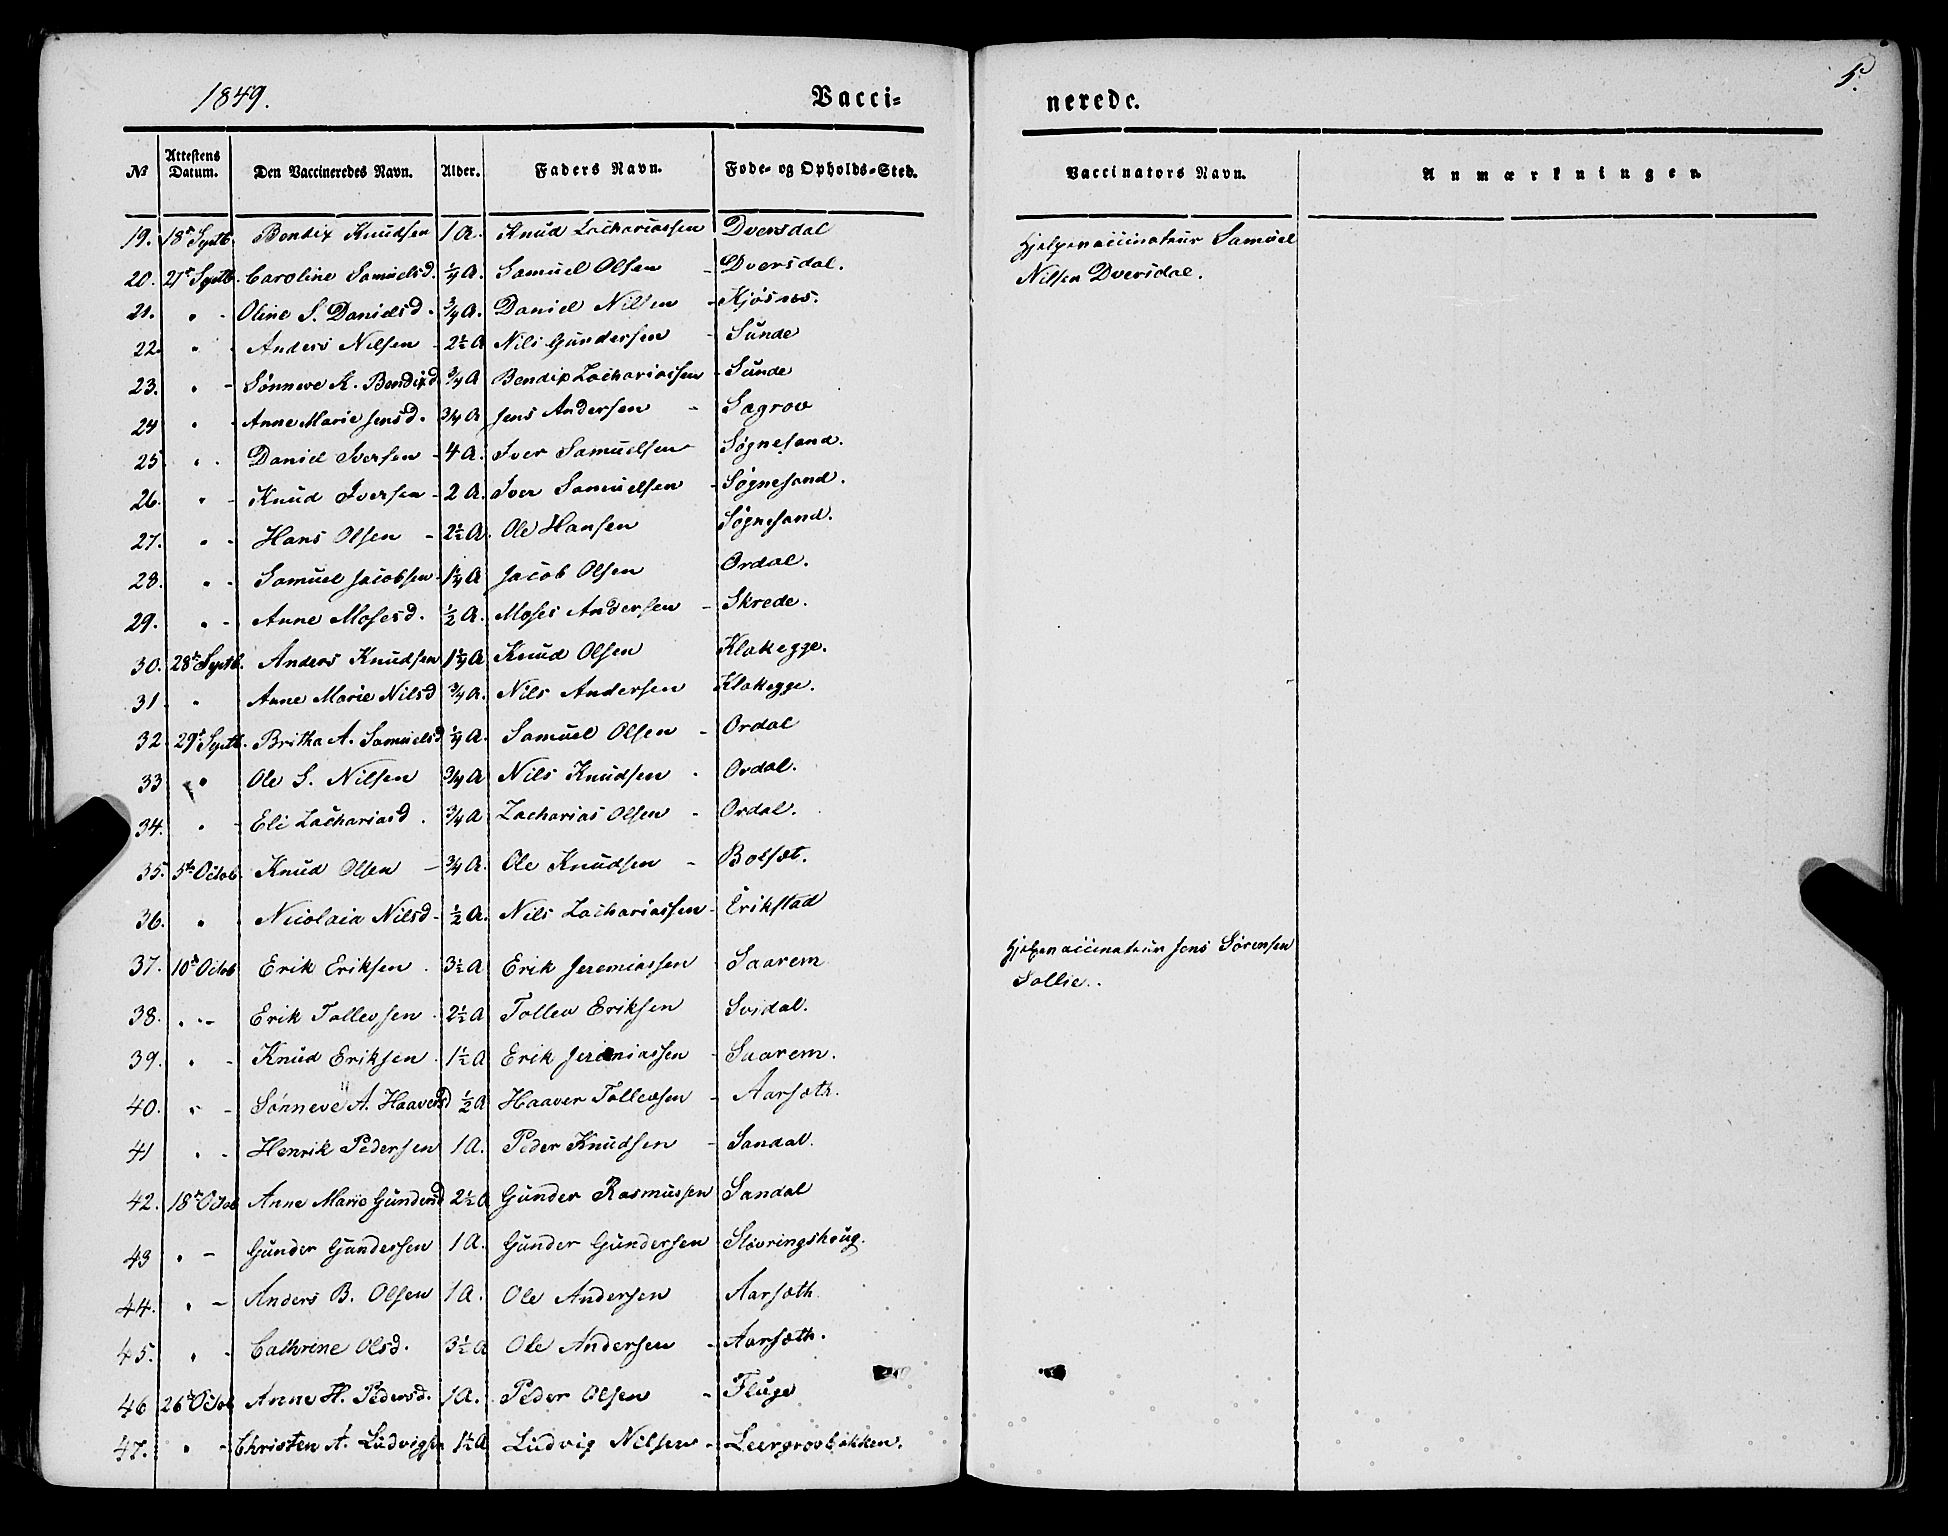 1849. Vacci= nerede. 5.
No Attestens Datum. Den Vaccineredes Navn. Alder. Faders Navn. Føde- og Opholds-Sted. Vaccinators Navn. Anmærkninger.
19. 18de Septb. Bendix Knudsen 1 A. Knud Zachariassen Dversdal Hjelpevaccinateur Samuel
20. 21de Septb. Caroline Samuelsd. ¼ A. Samuel Olsen - Dversdal. Nilsen Dversdal.
21. " - Oline S. Danielsd. ¾ A. Daniel Nilsen - Kjøsnes.
22. " - Anders Nilsen - 2½ A Nils Gundersen - Sunde
23. " - Sønneve K. Bendixd ¾ A Bendix Zachariassen - Sunde
24 " - Anne Marie Jensd. ¾ A Jens Andersen - Sægrov
25 " - Daniel Iversen - 4 A. Iver Samuelsen - Søgnesand.
26. " - Knud Iversen - 2 A. Iver Samuelsen - Søgnesand.
27. " - Hans Olsen - 2½ A. Ole Hansen Søgnesand.
28. " - Samuel Jacobsen. 1¼ A Jacob Olsen Ordal.
29. " - Anne Mosesd. ½ A. Moses Andersen - Skrede.
30. 28de Septb. Anders Knudsen 1¼ A Knud Olsen Klakegge.
31 " Anne Marie Nilsd ¾ A. Nils Andersen - Klakegge.
32. 29de Septb. Britha A. Samuelsd ¼ A. Samuel Olsen - Ordal
33 " Ole S. Nilsen ¾ A Nils Knudsen - Ordal.
34. " - Eli Zachariasd. ¾ A Zacharias Olsen - Ordal.
35. 5te Octob. Knud Olsen - ¾ A. Ole Knudsen - Bolsæt.
36. " Nicolaia Nilsd - ½ A. Nils Zachariassen - Erikstad
37. 10de Octob Erik Eriksen . 3½ A Erik Jeremiassen - Saarem Hjelpevaccinateur Jens Sørensen
38. " - Erik Tollevsen . 2½ A Tollev Eriksen Svidal. Sollie.
39. " - Knud Eriksen . 1½ A Erik Jeremiassen - Saarem.
40. " - Sønneve A. Haaversd ½ A Haaver Tollevsen - Aarsæth.
41 " - Henrik Pedersen 1 A. Peder Knudsen - Sandal.
42. 18de Octob Anne Marie Gundersd 2½ A Gunder Rasmussen Sandal
43 " - Gunder Gundersen 1 A. Gunder Gundersen - Støvringshoug.
44. " - Anders B. Olsen 1 A. Ole Andersen Aarsæth.
45. " - Cathrine Olsd. 3½ A Ole Andersen - Aarsæth.
46 26de Octob Anne H. Pedersd. 1 A. Peder Olsen - Fluge
47. " - Christen A. Ludvigsen 1½ A Ludvig Nilsen -